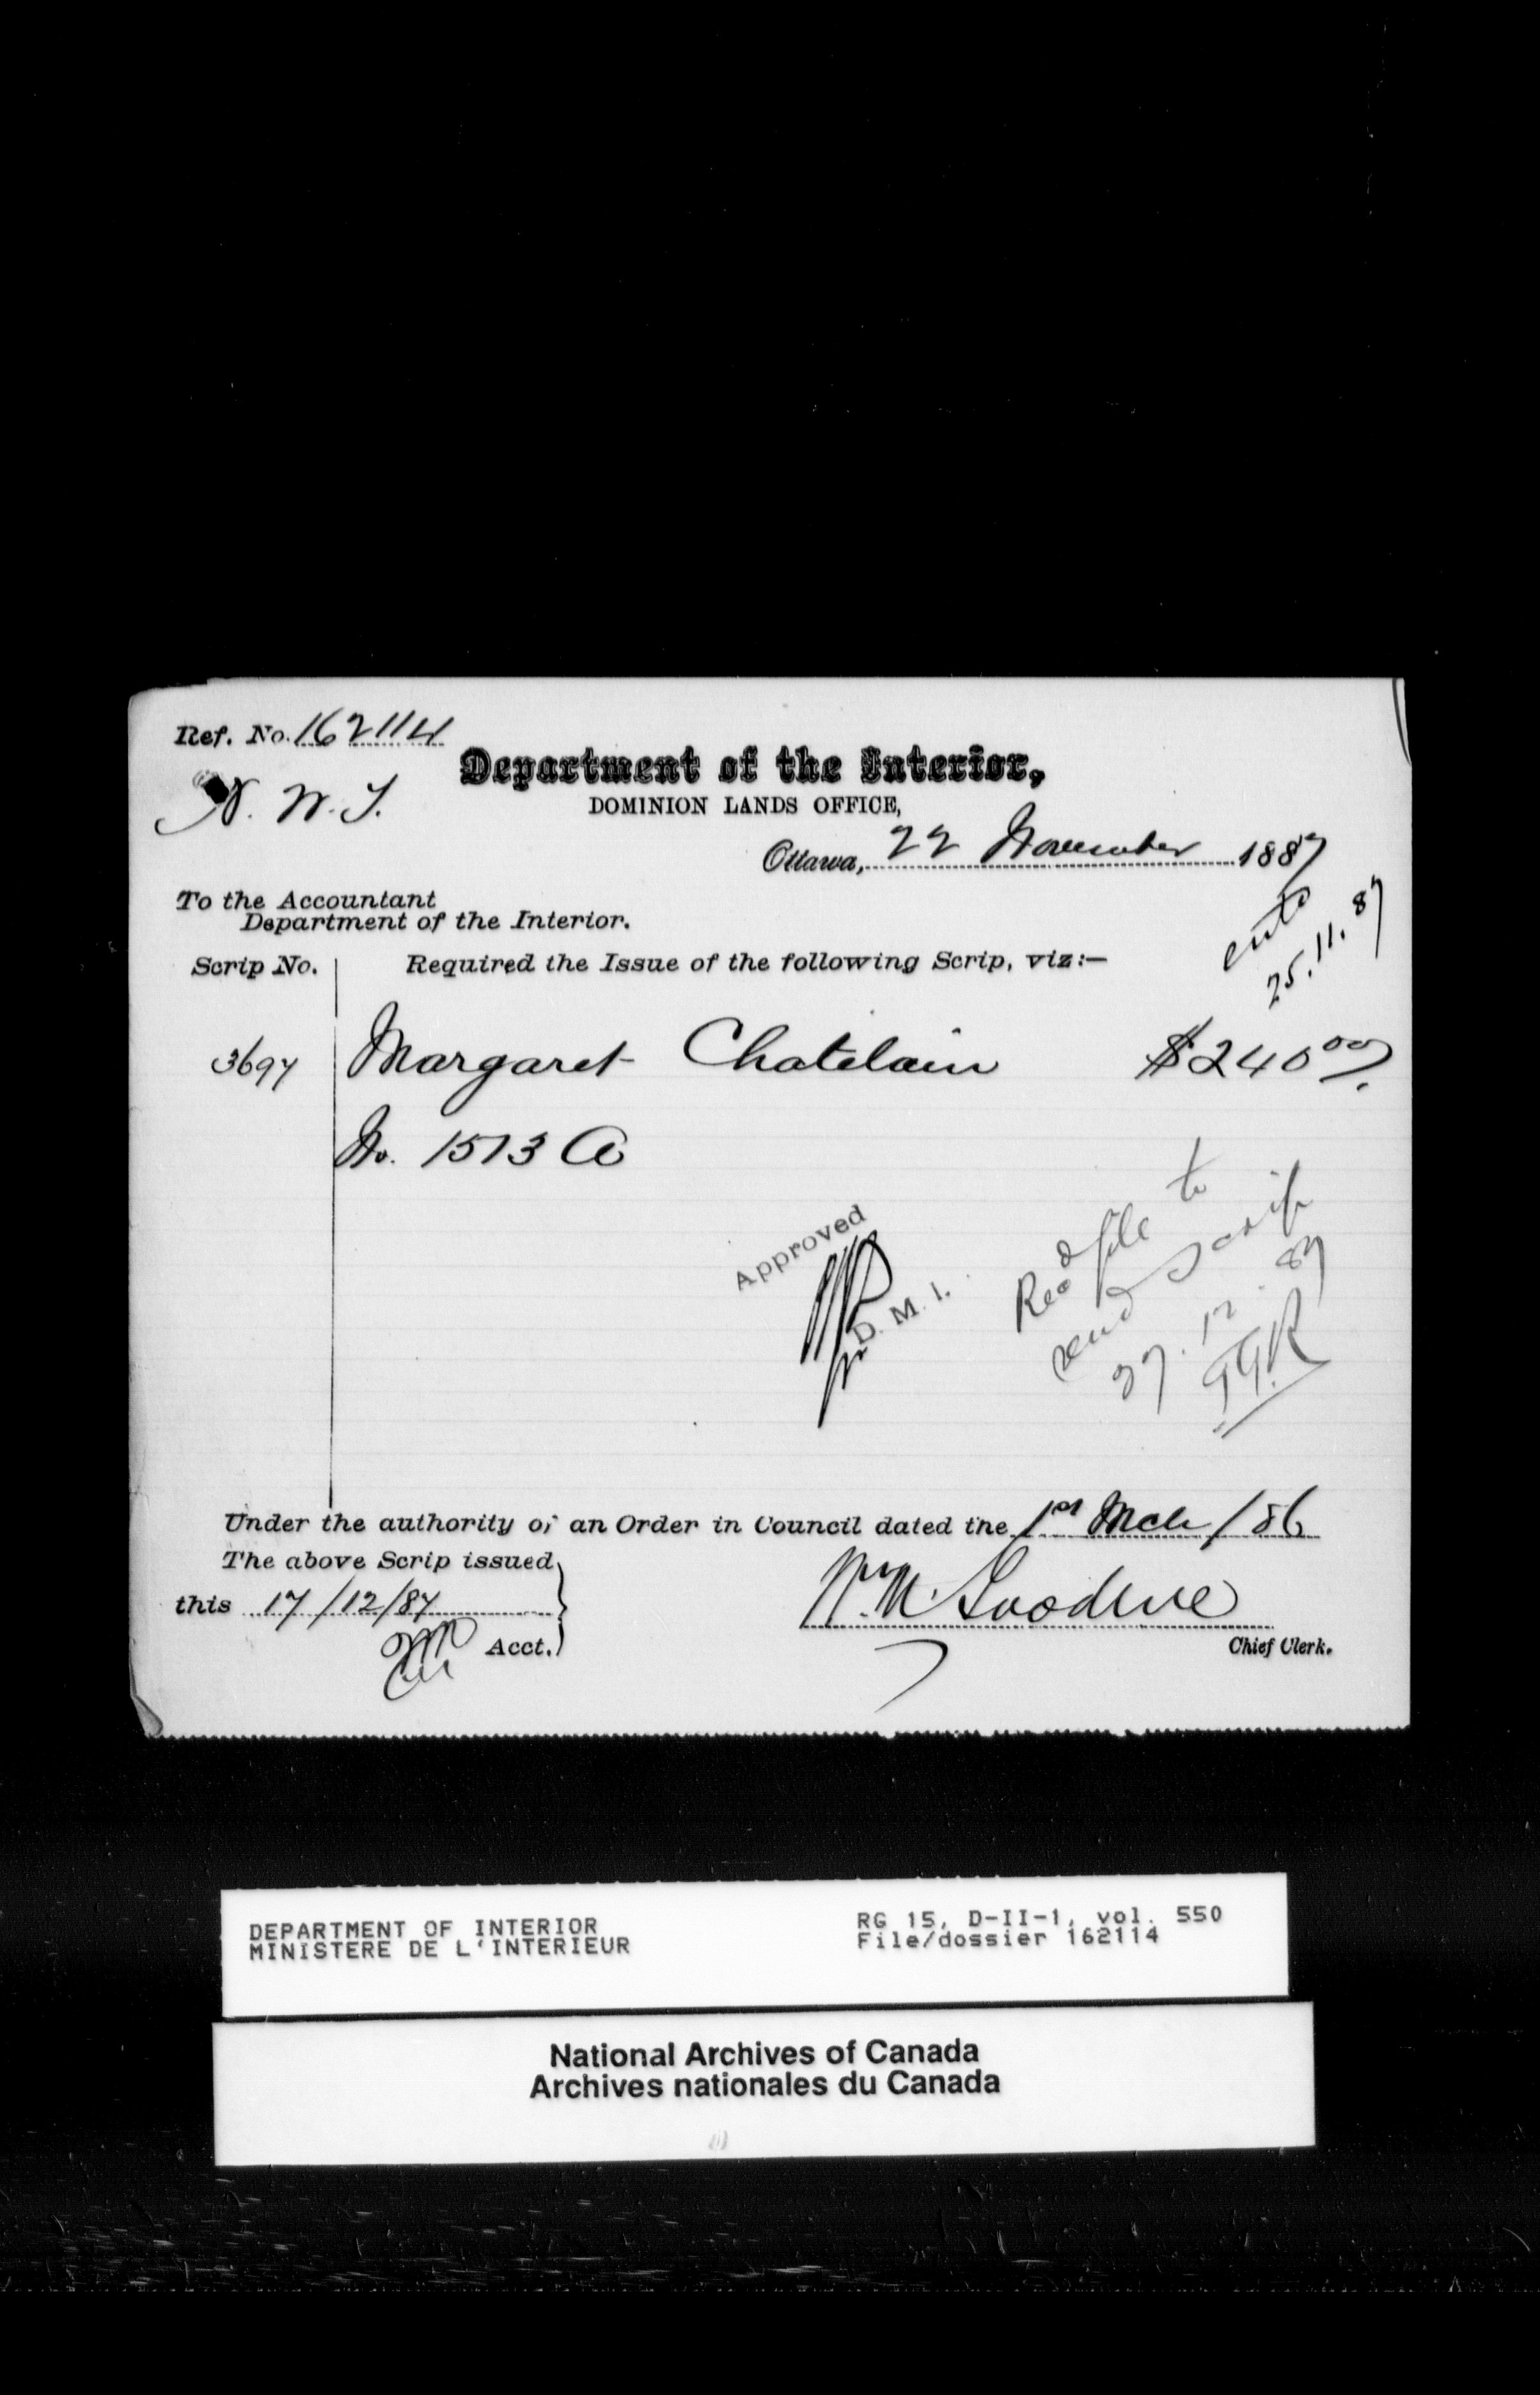 Ref. No. 162114
N. W. T.
Department of the Interior,
DOMINION LANDS OFFICE,
Ottawa, 22 November 1887
To the Accountant
Department of the Interior.
25.11.87
Scrip No. Required the Issue of the following Scrip, viz:—
3697 Margaret Chatelain $240.00
No. 1573 A
Approved
D. M. I.
Recd file to
send scrip
27.12.87
Under the authority of an Order in Council dated the 1st Mch/86
The above Scrip issued
this 17/12/87
Acct.
Chief Clerk.
DEPARTMENT OF INTERIOR
MINISTERE DE L'INTERIEUR
RG 15, D-II-1, vol. 550
File/dossier 162114
National Archives of Canada
Archives nationales du Canada